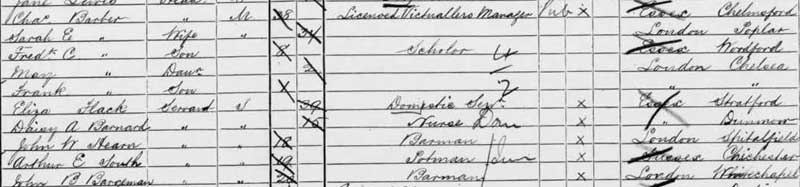 Chas Barber " M 38 Licensed Victuallers Manager Pub x Essex Chelmsford
Sarah E " Wife 34 London Poplar
Fredk C " Son 8 Scholar 4 Essex Woodford
May " Daur London Chelsea
Frank " Son 2 " "
Eliza Flack Servant S 39 Domestic Serv x Essex Stratford
Daisy A Barnard " " 15 Nurse Dom x " Dunmow
John W Hearn " " 18 Barman x London Spitalfield
Arthur E South " " 19 Potman x Sussex Chichester
John B Bargeman " " Barman x London Whitechapel